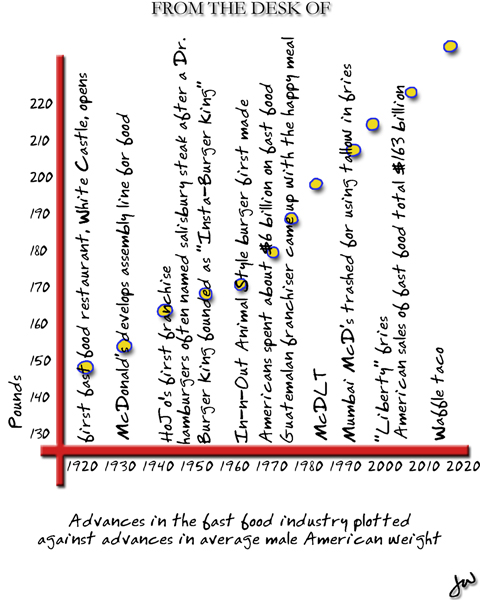 FROM THE DESK OF
Pounds
220
210
200
190
180
170
160
150
140
130
first fast food restaurant, White Castle, opens
McDonald's develops assembly line for food
HoJo's first franchise
hamburgers often named salisbury steak after a Dr.
Burger King founded as "Insta-Burger King"
In-n-Out Animal Style burger first made
Americans spent about $6 billion on fast food
Guatemalan franchiser came up with the happy meal
McDLT
Mumbai McD's trashed for using tallow in fries
"Liberty" fries
American sales of fast food total $163 billion
Waffle taco
1920 1930 1940 1950 1960 1970 1980 1990 2000 2010 2020
Advances in the fast food industry plotted
against advances in average male American weight
JW